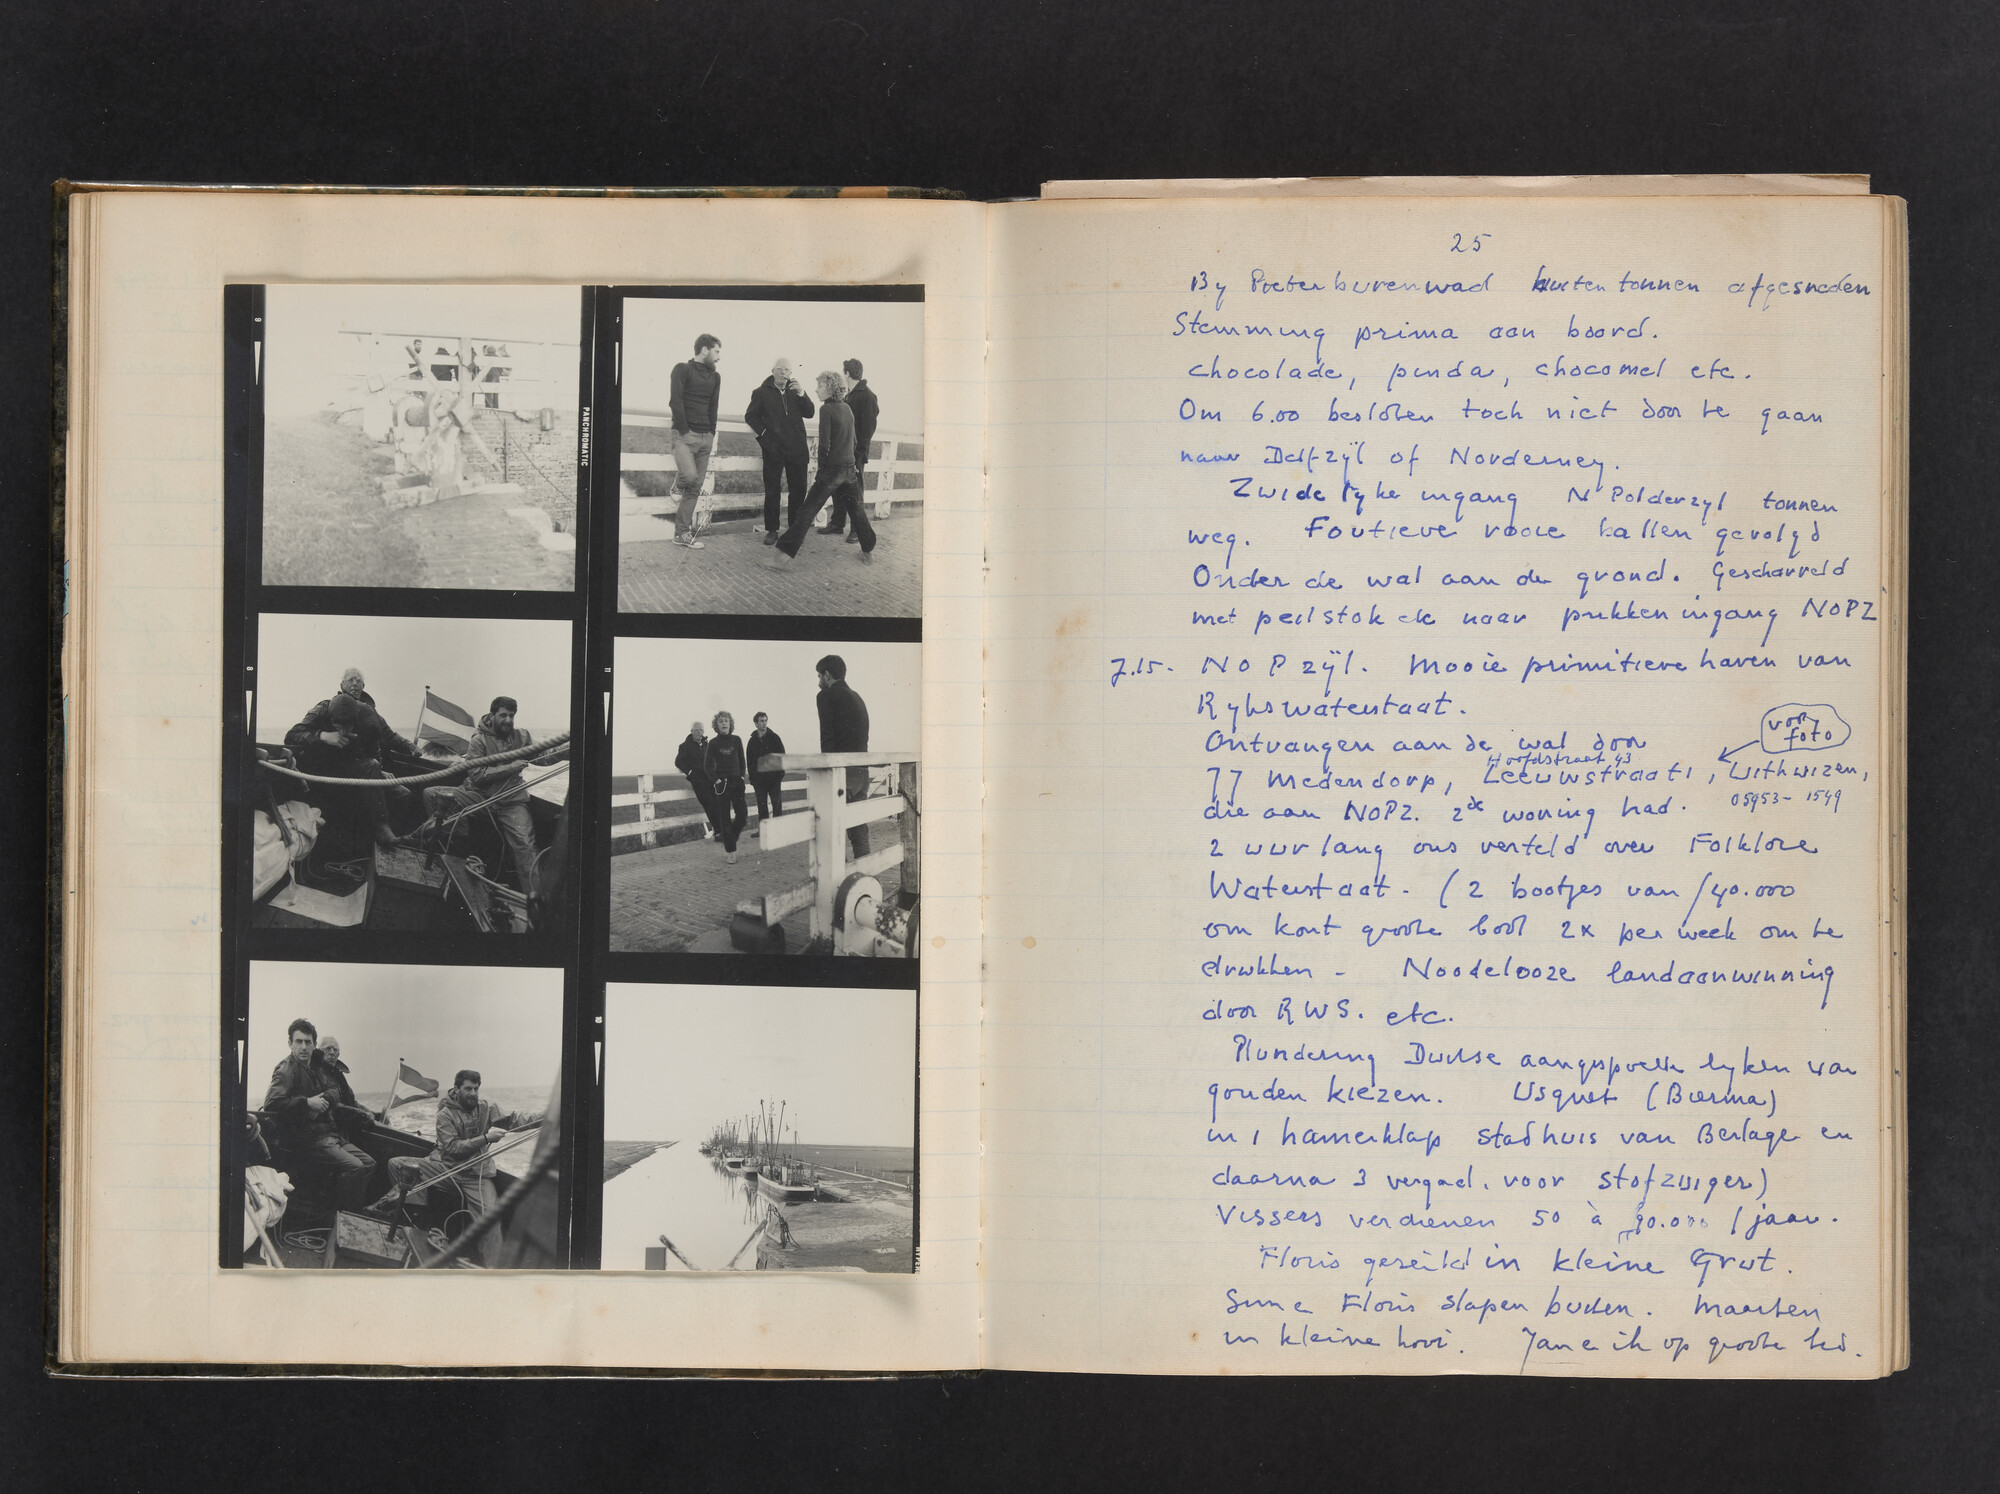 PANCHROMATIC
25
By Pieterburenwad buiten tonnen afgesneden
Stemming prima aan boord.
chocolade, pinda, chocomel etc.
Om 6.00 besloten toch niet door te gaan
naar Delfzÿl of Norderney.
Zuidelyke ingang N Polderzyl tonnen
weg. Foutieve rooie ballen gevolgd
Onder de wal aan de grond. Gescharreld
met peilstok naar prikken ingang NOPZ
7.15. NOPzÿl. Mooie primitieve haven van
Rykswaterstaat.
voor foto
Ontvangen aan de wal door
Hoofdstraat 43
Medendorp, Leeuwstraat 1, Uithuizen,
05953-1549
die aan NOPZ. 2de woning had.
2 uur lang ons verteld over Folklore
Waterstaat. (2 bootjes van ƒ40.000
om kont groote boot 2x per week om te
drukken - Noodelooze landaanwinning
door RWS. etc.
Plundering Duitse aangespoelde lyken van
gouden kiezen. Usquet (Bierma)
in 1 hamerklap stadhuis van Berlage en
daarna 3 vergad. voor stofzuiger)
Vissers verdienen 50 à 90.000 /jaar.
Floris gezeild in kleine Grut.
Sim e Floris slapen buiten. Maarten
in kleine kooi. Jan e ik op groote bed.